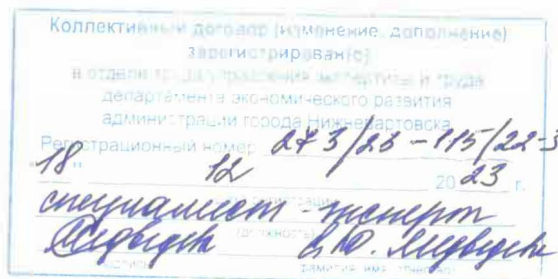 Коллективный договор (изменение, дополнение)
зарегистрирован(о)
в отделе труда управления экспертизы и труда
департамента экономического развития
администрации города Нижневартовска
Регистрационный номер 273/23-115/22-3
"18" 12 2023 г.
специалист-эксперт
(должность)
Медведева Ю. Медведева
подпись фамилия, имя, отчество